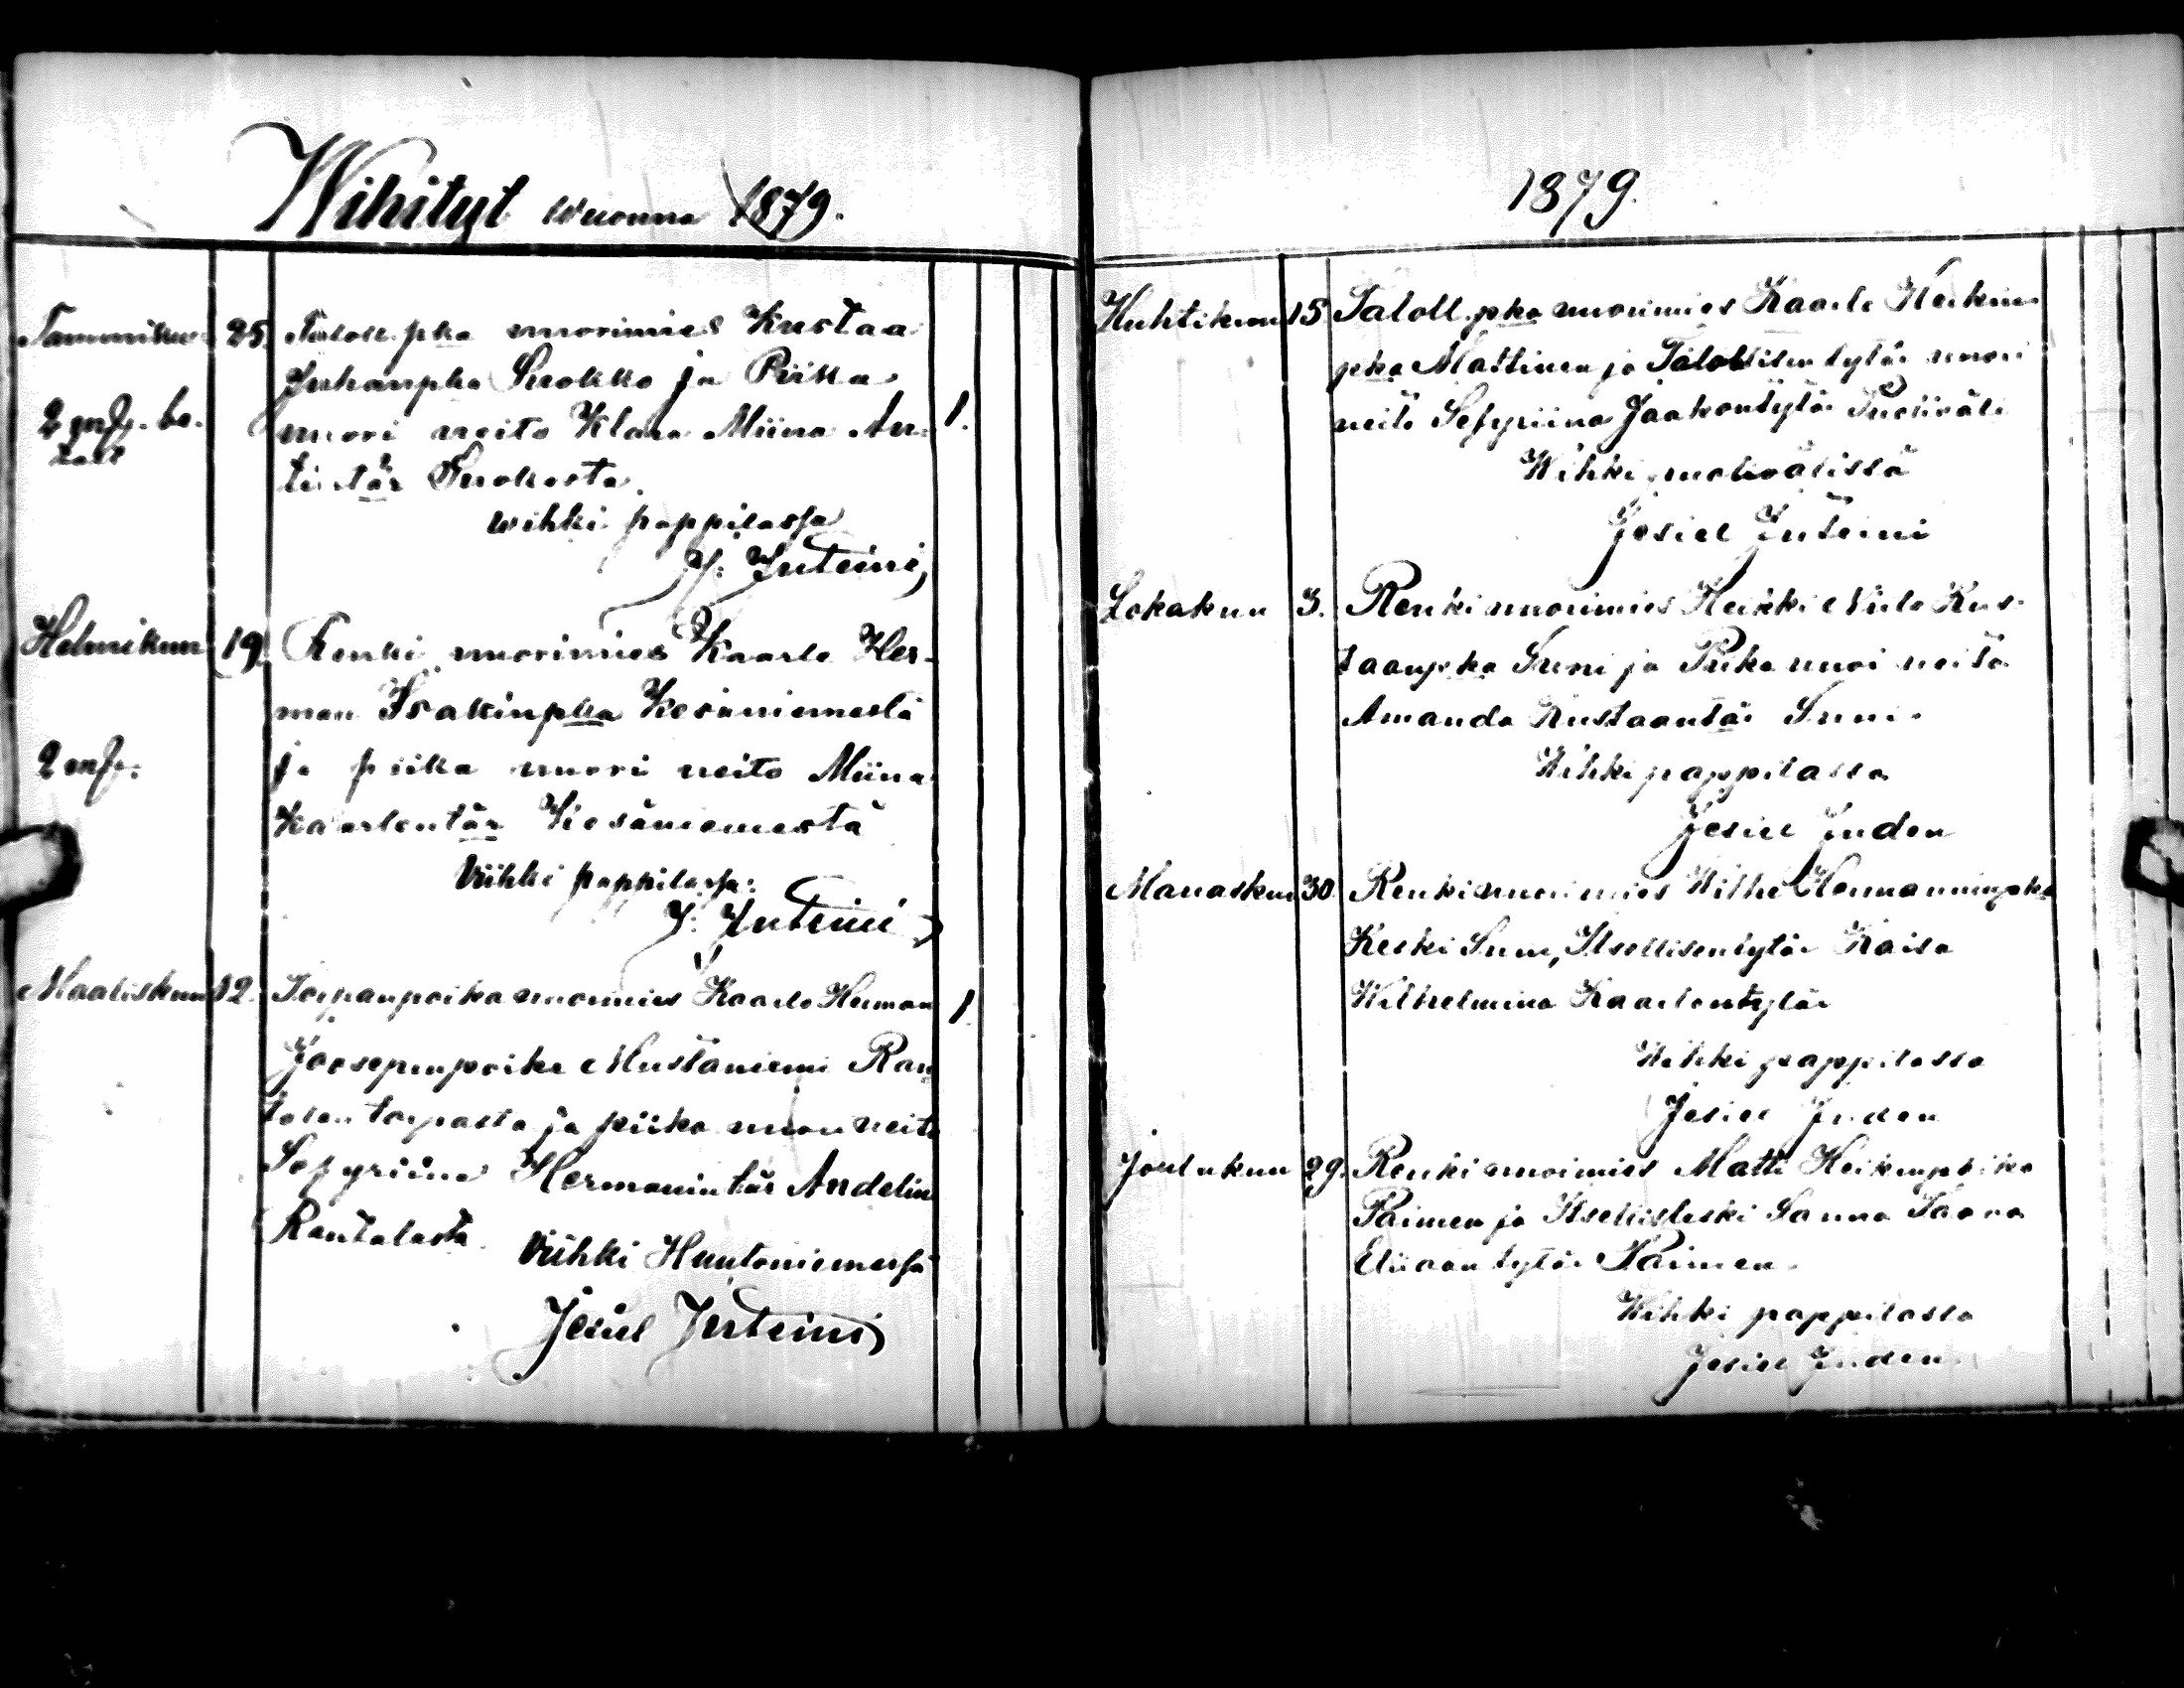 Wihityt wuonna 1879.
Tammikuu 25. Taloll. pka nuorimies Kustaa
Juhanpka Suokko ja Piika
nuori neito Klara Miina An- 1.
tintär Suokosta.
wihki pappilassa
J. Juteini
Helmikuun 19. Renki nuorimies Kaarlo Her-
man Isakinpka Kesäniemestä
ja piika nuori neito Miina
Kaarlontär Kesäniemestä
Vihki pappilassa:
J. Juteini
Maaliskuun 12. Torpanpoika nuorimies Kaarlo Herman 1
Joosepinpoika Mustaniemi Ran
talan torpasta ja piika nuori neito
Sefyriina Hermanintär Andelin
Rantalasta. Vihki Huutoniemessä
Jesiel Juteini
1879.
Huhtikuun 15 Taloll. pka nuorimies Kaarle Heikin
pka Mattinen ja Talollisen tytär nuori
neito Sefyriina Jaakontytär
Wihki
Jesiel Juteini
Lokakuu 3. Renki nuorimies Heikki Niilo Kus-
taanpka Suni ja Piika nuori neito
Amanda Kustaantär Suni.
Wihki pappilassa
Jesiel Juden
Marraskuu 30. Renki nuorimies Wilhe Hermanninpka
Keski Suni, Itsellisentytär Kaisa
Wilhelmina Kaarlontytär
Wihki pappilassa
Jesiel Juden
Joulukuu 29. Renki nuorimies Matti Heikinpoika
Paimen ja Itsellisleski Sanna Saara
Eliaantytär Paimen.
Wihki pappilassa
Jesiel Juden.